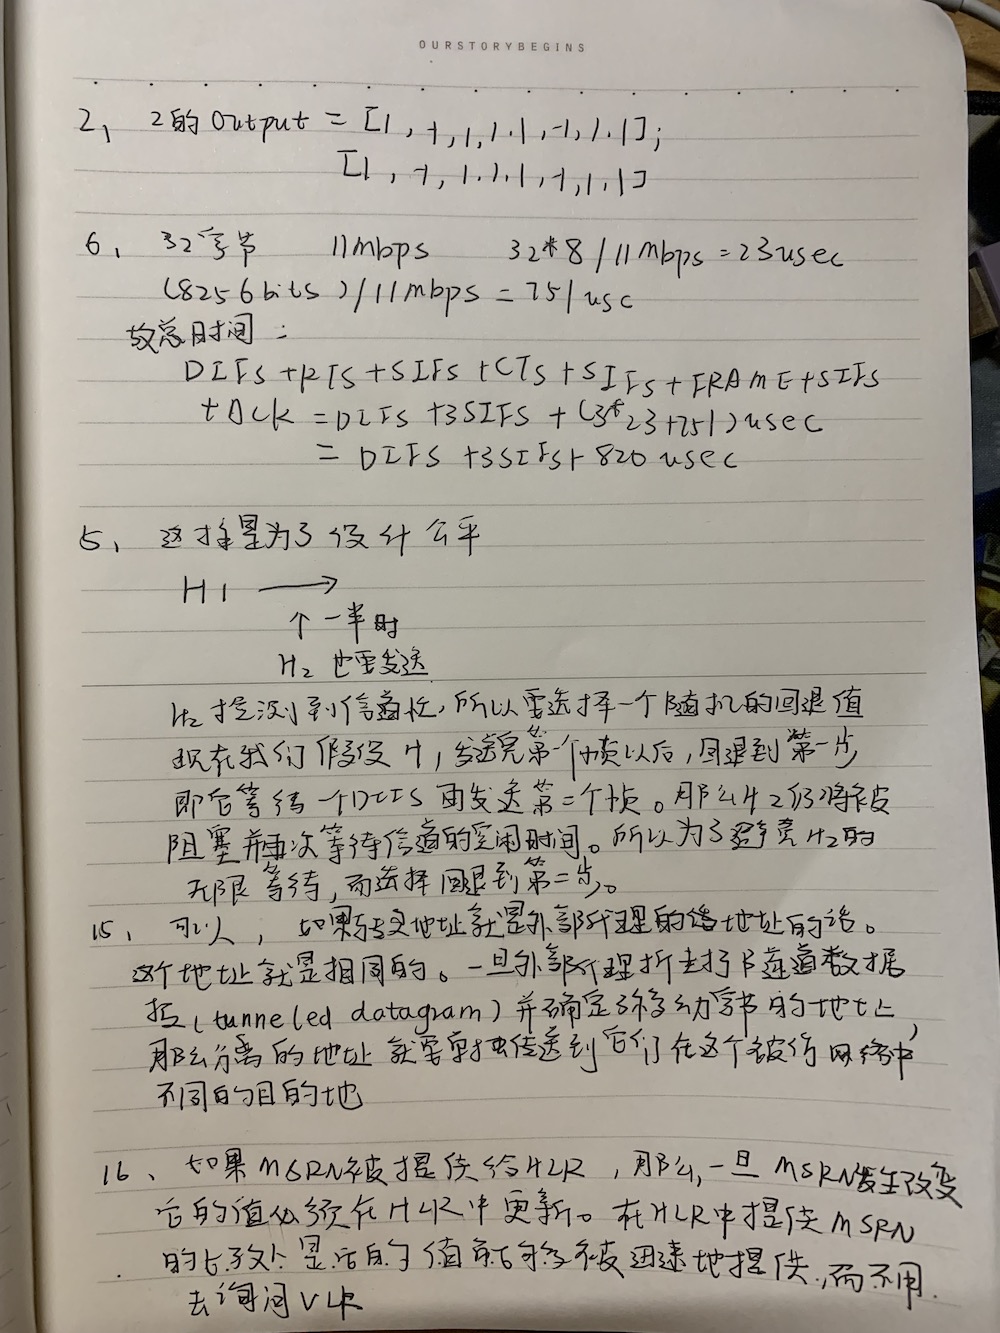 OURSTORYBEGINS
2、 2的Output = [1,-1,1,1.1,-1,1.1];
[1,-1,1.1.1,-1,1.1]
6、 32字节 11mbps 32*8/11mbps=23usec
(8256bits)/11mbps=751usc
故总时间:
DIFS+RTS+SIFS+CTS+SIFS+FRAME+SIFS
+ACK=DIFS+3SIFS+(3*23+751)usec
=DIFS+3SIFS+820usec
5、 这样是为了设计公平
H1 →
↑一半时
H2 也要发送
H2 检测到信道忙,所以要选择一个随机的回退值
现在我们假设H1发送完第一个帧以后,回退到第一步
即它等待一个DIFS再发送第二个帧。那么H2仍将被
阻塞并再次等待信道的空闲时间。所以为了避免H2的
无限等待,而选择回退到第二步。
15、 可以, 如果转交地址就是外部代理的地址的话。
这个地址就是相同的。一旦外部代理拆封了隧道数据
报(tunneled datagram)并确定了移动节的地址,
那么分离的地址就要单独传送到它们在这个被访网络中
不同的目的地
16、 如果MSRN被提供给HLR,那么,一旦MSRN发生改变
它的值必须在HLR中更新。在HLR中提供MSRN
的好处是它的值能够被迅速地提供,而不用
去询问VLR